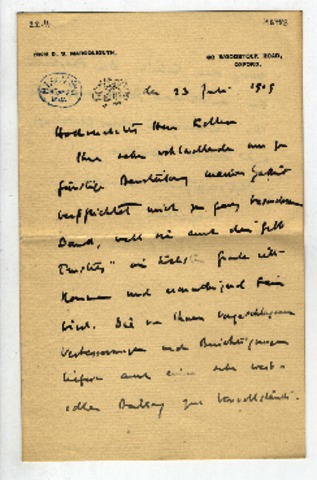 FROM D. S. MARGOLIOUTH,
88 WOODSTOCK ROAD,
OXFORD.
den 23 Juli 1909
Hochverehrter Herr College
Ihre sehr wohlwollende und zu
günstige Beurteilung meiner
verpflichtet mich zu ganz besonderem
Dank, weil sie auch dem
" im höchsten Grade will-
kommen und ermutigend sein
wird. Die von Ihnen vorgeschlagenen
Verbesserungen und Berichtigungen
liefern auch einen sehr wert-
vollen Beitrag zur Vervollständi-